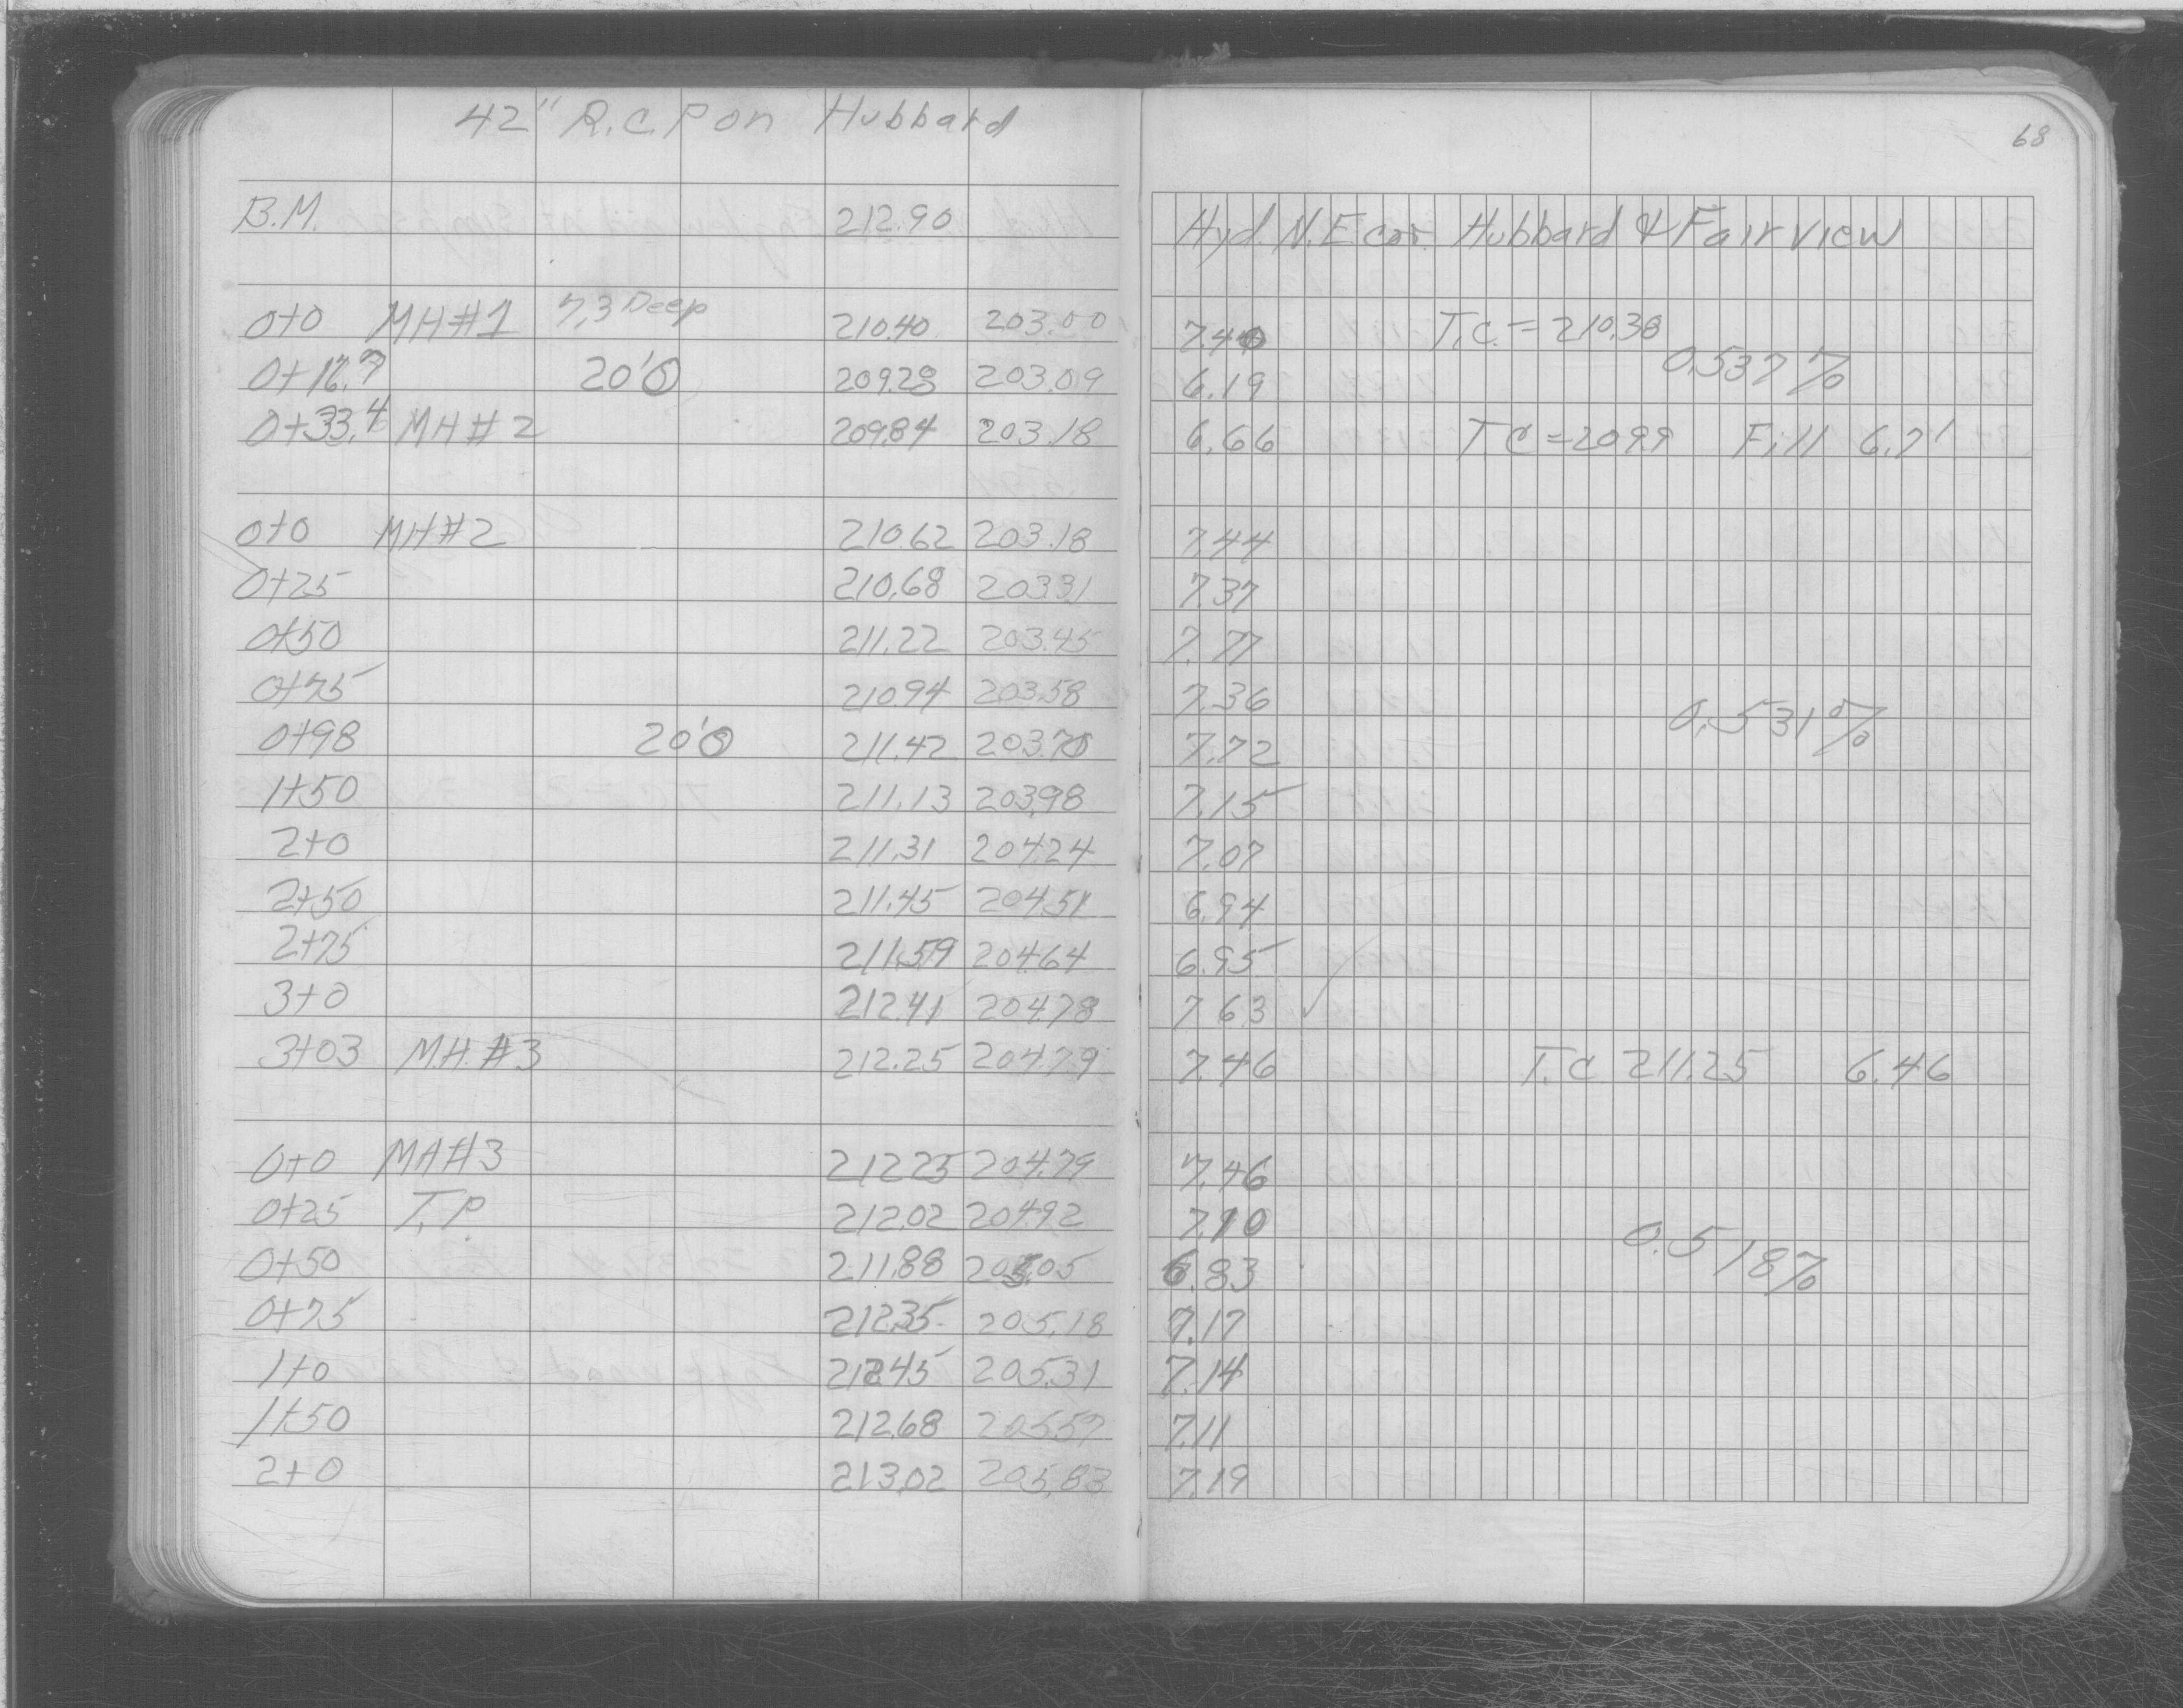 42" R.C.P on Hubbard
68
B.M. 212.90 Hyd. N.E cor. Hubbard & Fairview
0+0 MH#1 7.3 Deep 210.40 203.00 7.40 T.C. = 210.38
0+16.7 20'⊙ 209.28 203.09 6.19 0.537%
0+33.4 MH#2 209.84 203.18 6.66 T.C = 209.9 Fill 6.7'
0+0 MH#2 210.62 203.18 7.44
0+25 210.68 203.31 7.37
0+50 211.22 203.45 7.77
0+75 210.94 203.58 7.36 0.531%
0+98 20'⊙ 211.42 203.70 7.72
1+50 211.13 203.98 7.15
2+0 211.31 204.24 7.07
2+50 211.45 204.51 6.94
2+75 211.59 204.64 6.95
3+0 212.41 204.78 7.63 ✓
3+03 M.H.#3 212.25 204.79 7.46 T.C 211.25 6.46
0+0 MH#3 212.25 204.79 7.46
0+25 T.P. 212.02 204.92 7.10 0.518%
0+50 211.88 205.05 6.83
0+75 212.35 205.18 7.17
1+0 212.45 205.31 7.14
1+50 212.68 205.57 7.11
2+0 213.02 205.83 7.19